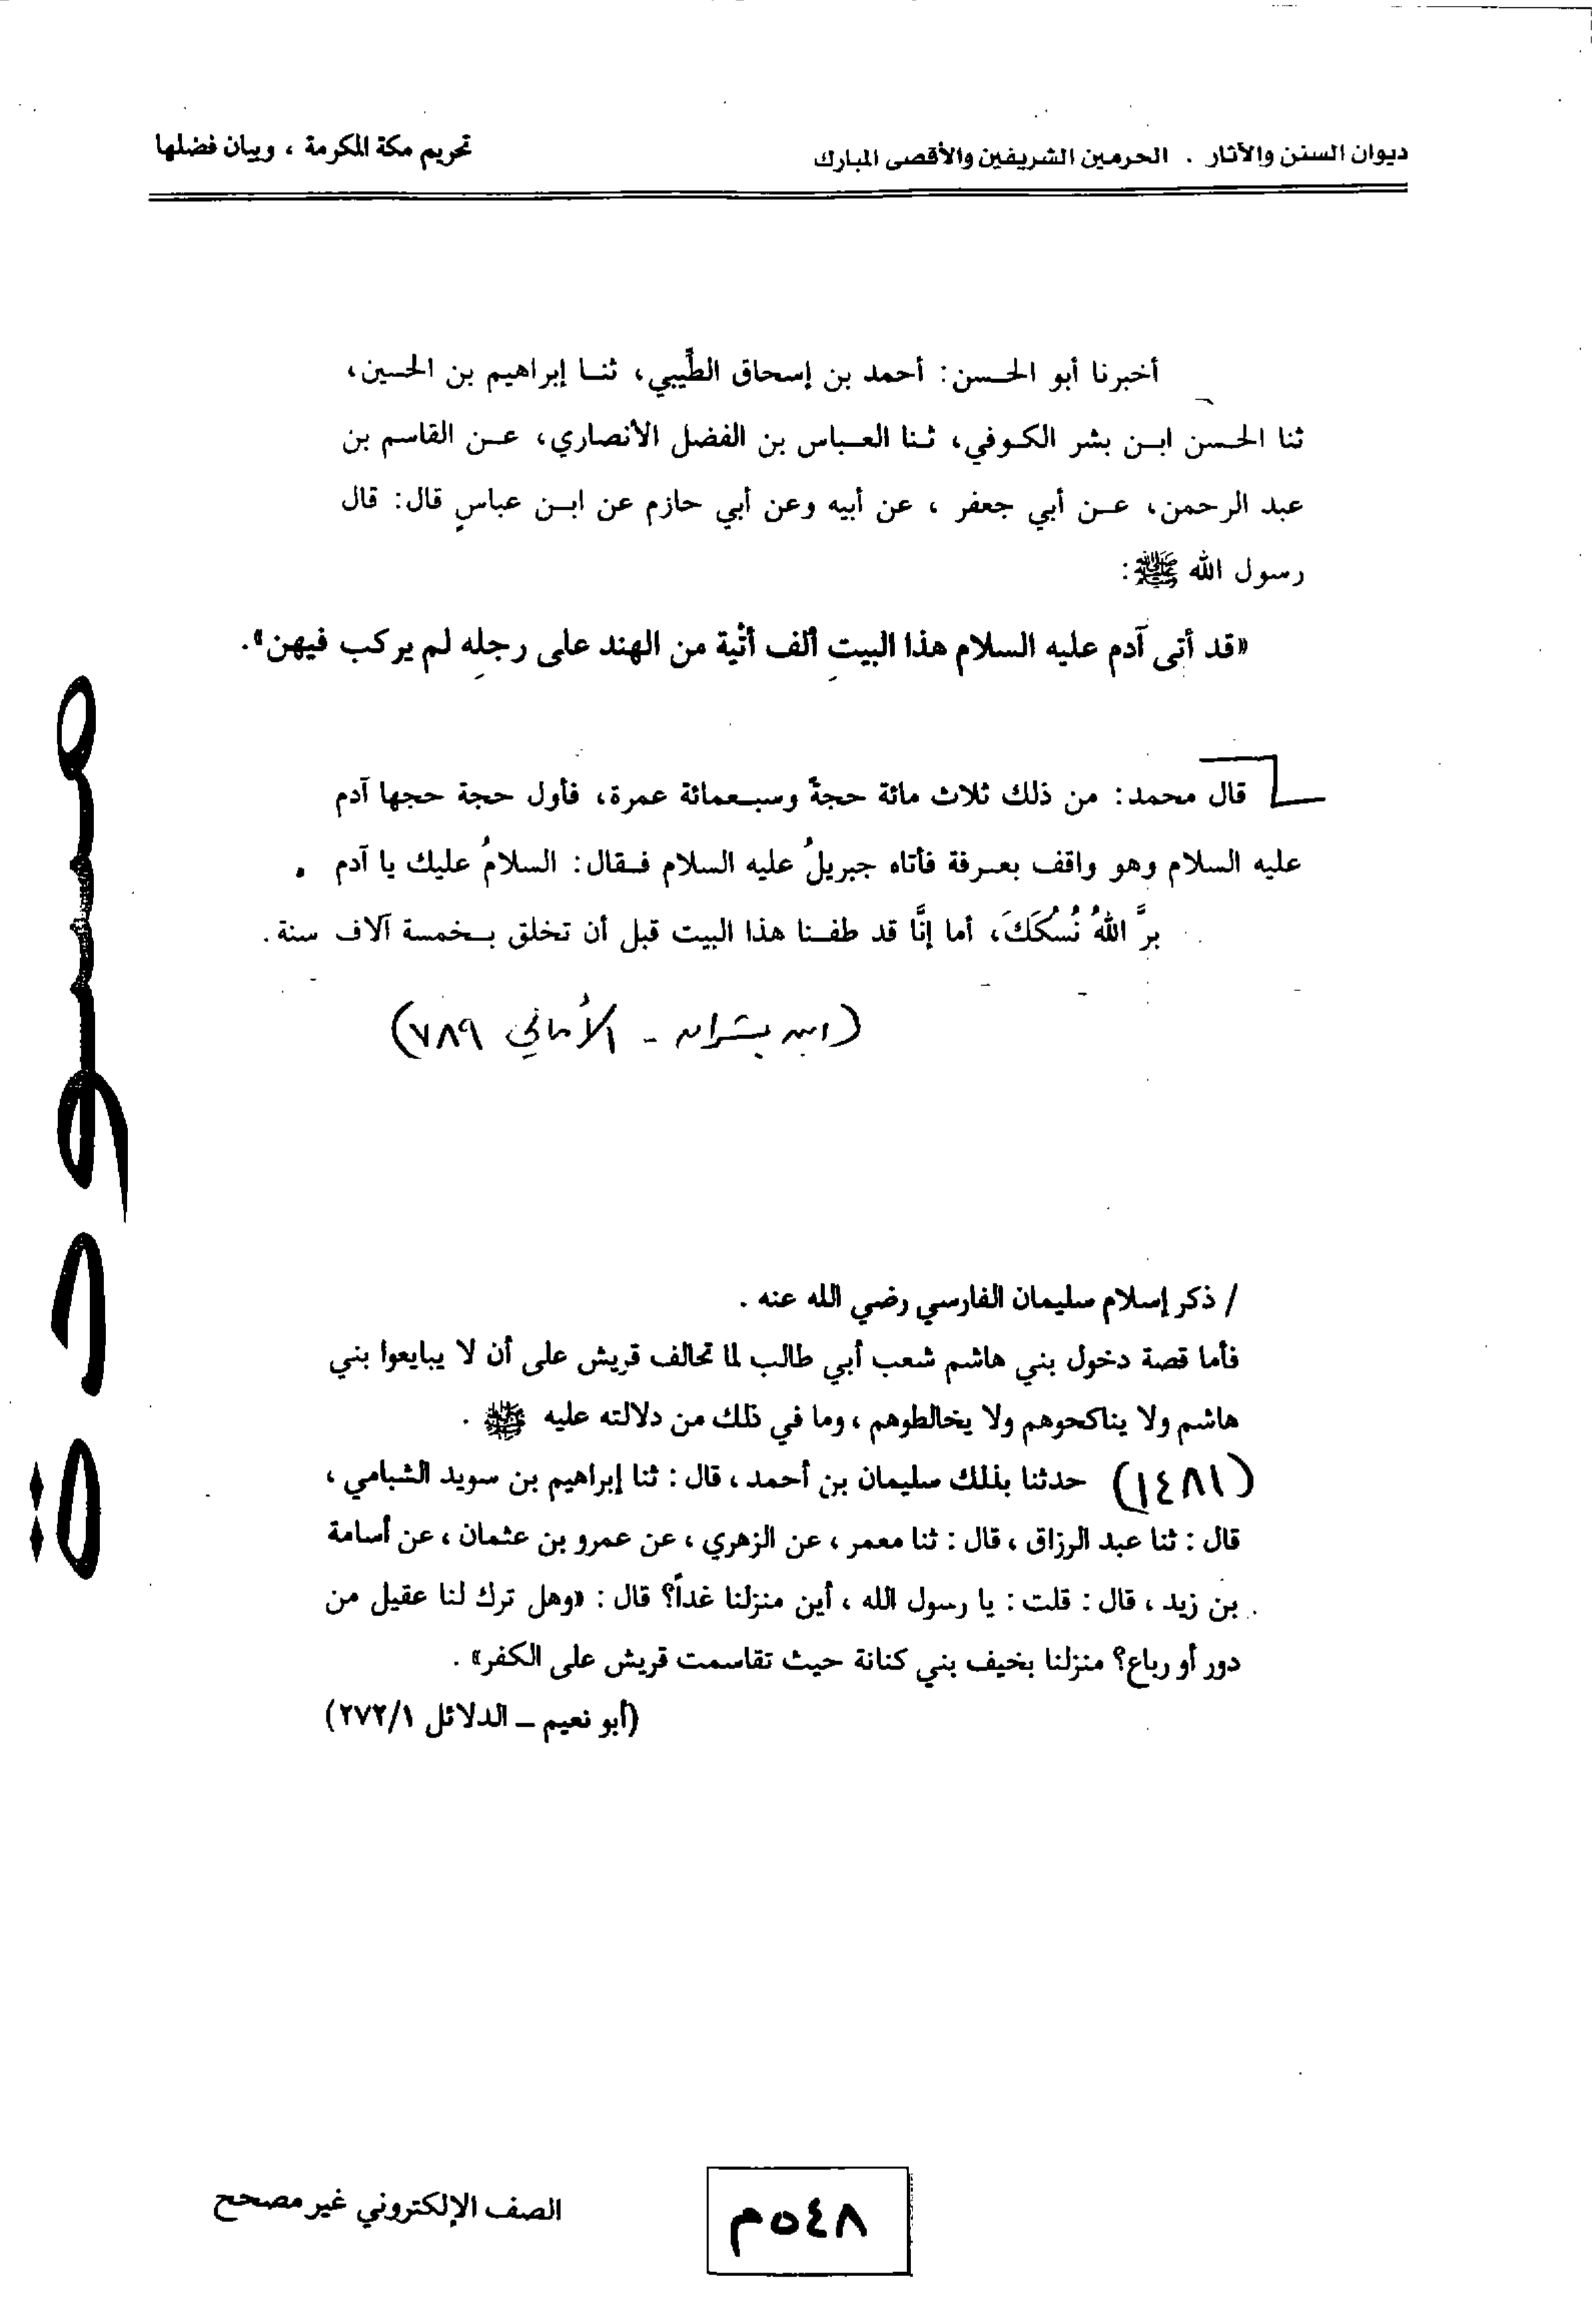 ديوان السنن والآثار . الحرمين الشريفين والأقصى المبارك
تحريم مكة المكرمة ، وبيان فضلها
أخبرنا أبو الحسن: أحمد بن إسحاق الطِّيبي، ثنا إبراهيم بن الحسين،
ثنا الحسن ابن بشر الكوفي، ثنا العباس بن الفضل الأنصاري، عن القاسم بن
عبد الرحمن، عن أبي جعفر ، عن أبيه وعن أبي حازم عن ابن عباسٍ قال: قال
رسول الله ﷺ:
«قد أتى آدم عليه السلام هذا البيت ألف أتْية من الهند على رجله لم يركب فيهن».
قال محمد: من ذلك ثلاث مائة حجةً وسبعمائة عمرة، فأول حجة حجها آدم
عليه السلام وهو واقف بعرفة فأتاه جبريلُ عليه السلام فقال: السلامُ عليك يا آدم .
برَّ اللهُ نُسُكَكَ، أما إنَّا قد طفنا هذا البيت قبل أن تخلق بخمسة آلاف سنة.
(ابن بشران - الأمالي ٧٨٩)
مسودة
/ ذكر إسلام سليمان الفارسي رضي الله عنه .
فأما قصة دخول بني هاشم شعب أبي طالب لما تحالف قريش على أن لا يبايعوا بني
هاشم ولا يناكحوهم ولا يخالطوهم ، وما في ذلك من دلالته عليه ﷺ .
(١٤٨١) حدثنا بذلك سليمان بن أحمد ، قال : ثنا إبراهيم بن سويد الشبامي ،
قال : ثنا عبد الرزاق ، قال : ثنا معمر ، عن الزهري ، عن عمرو بن عثمان ، عن أسامة
بن زيد ، قال : قلت : يا رسول الله ، أين منزلنا غداً؟ قال : «وهل ترك لنا عقيل من
دور أو رباع؟ منزلنا بخيف بني كنانة حيث تقاسمت قريش على الكفر» .
(أبو نعيم – الدلائل ٢٧٢/١)
٥٤٨م
الصف الإلكتروني غير مصحح